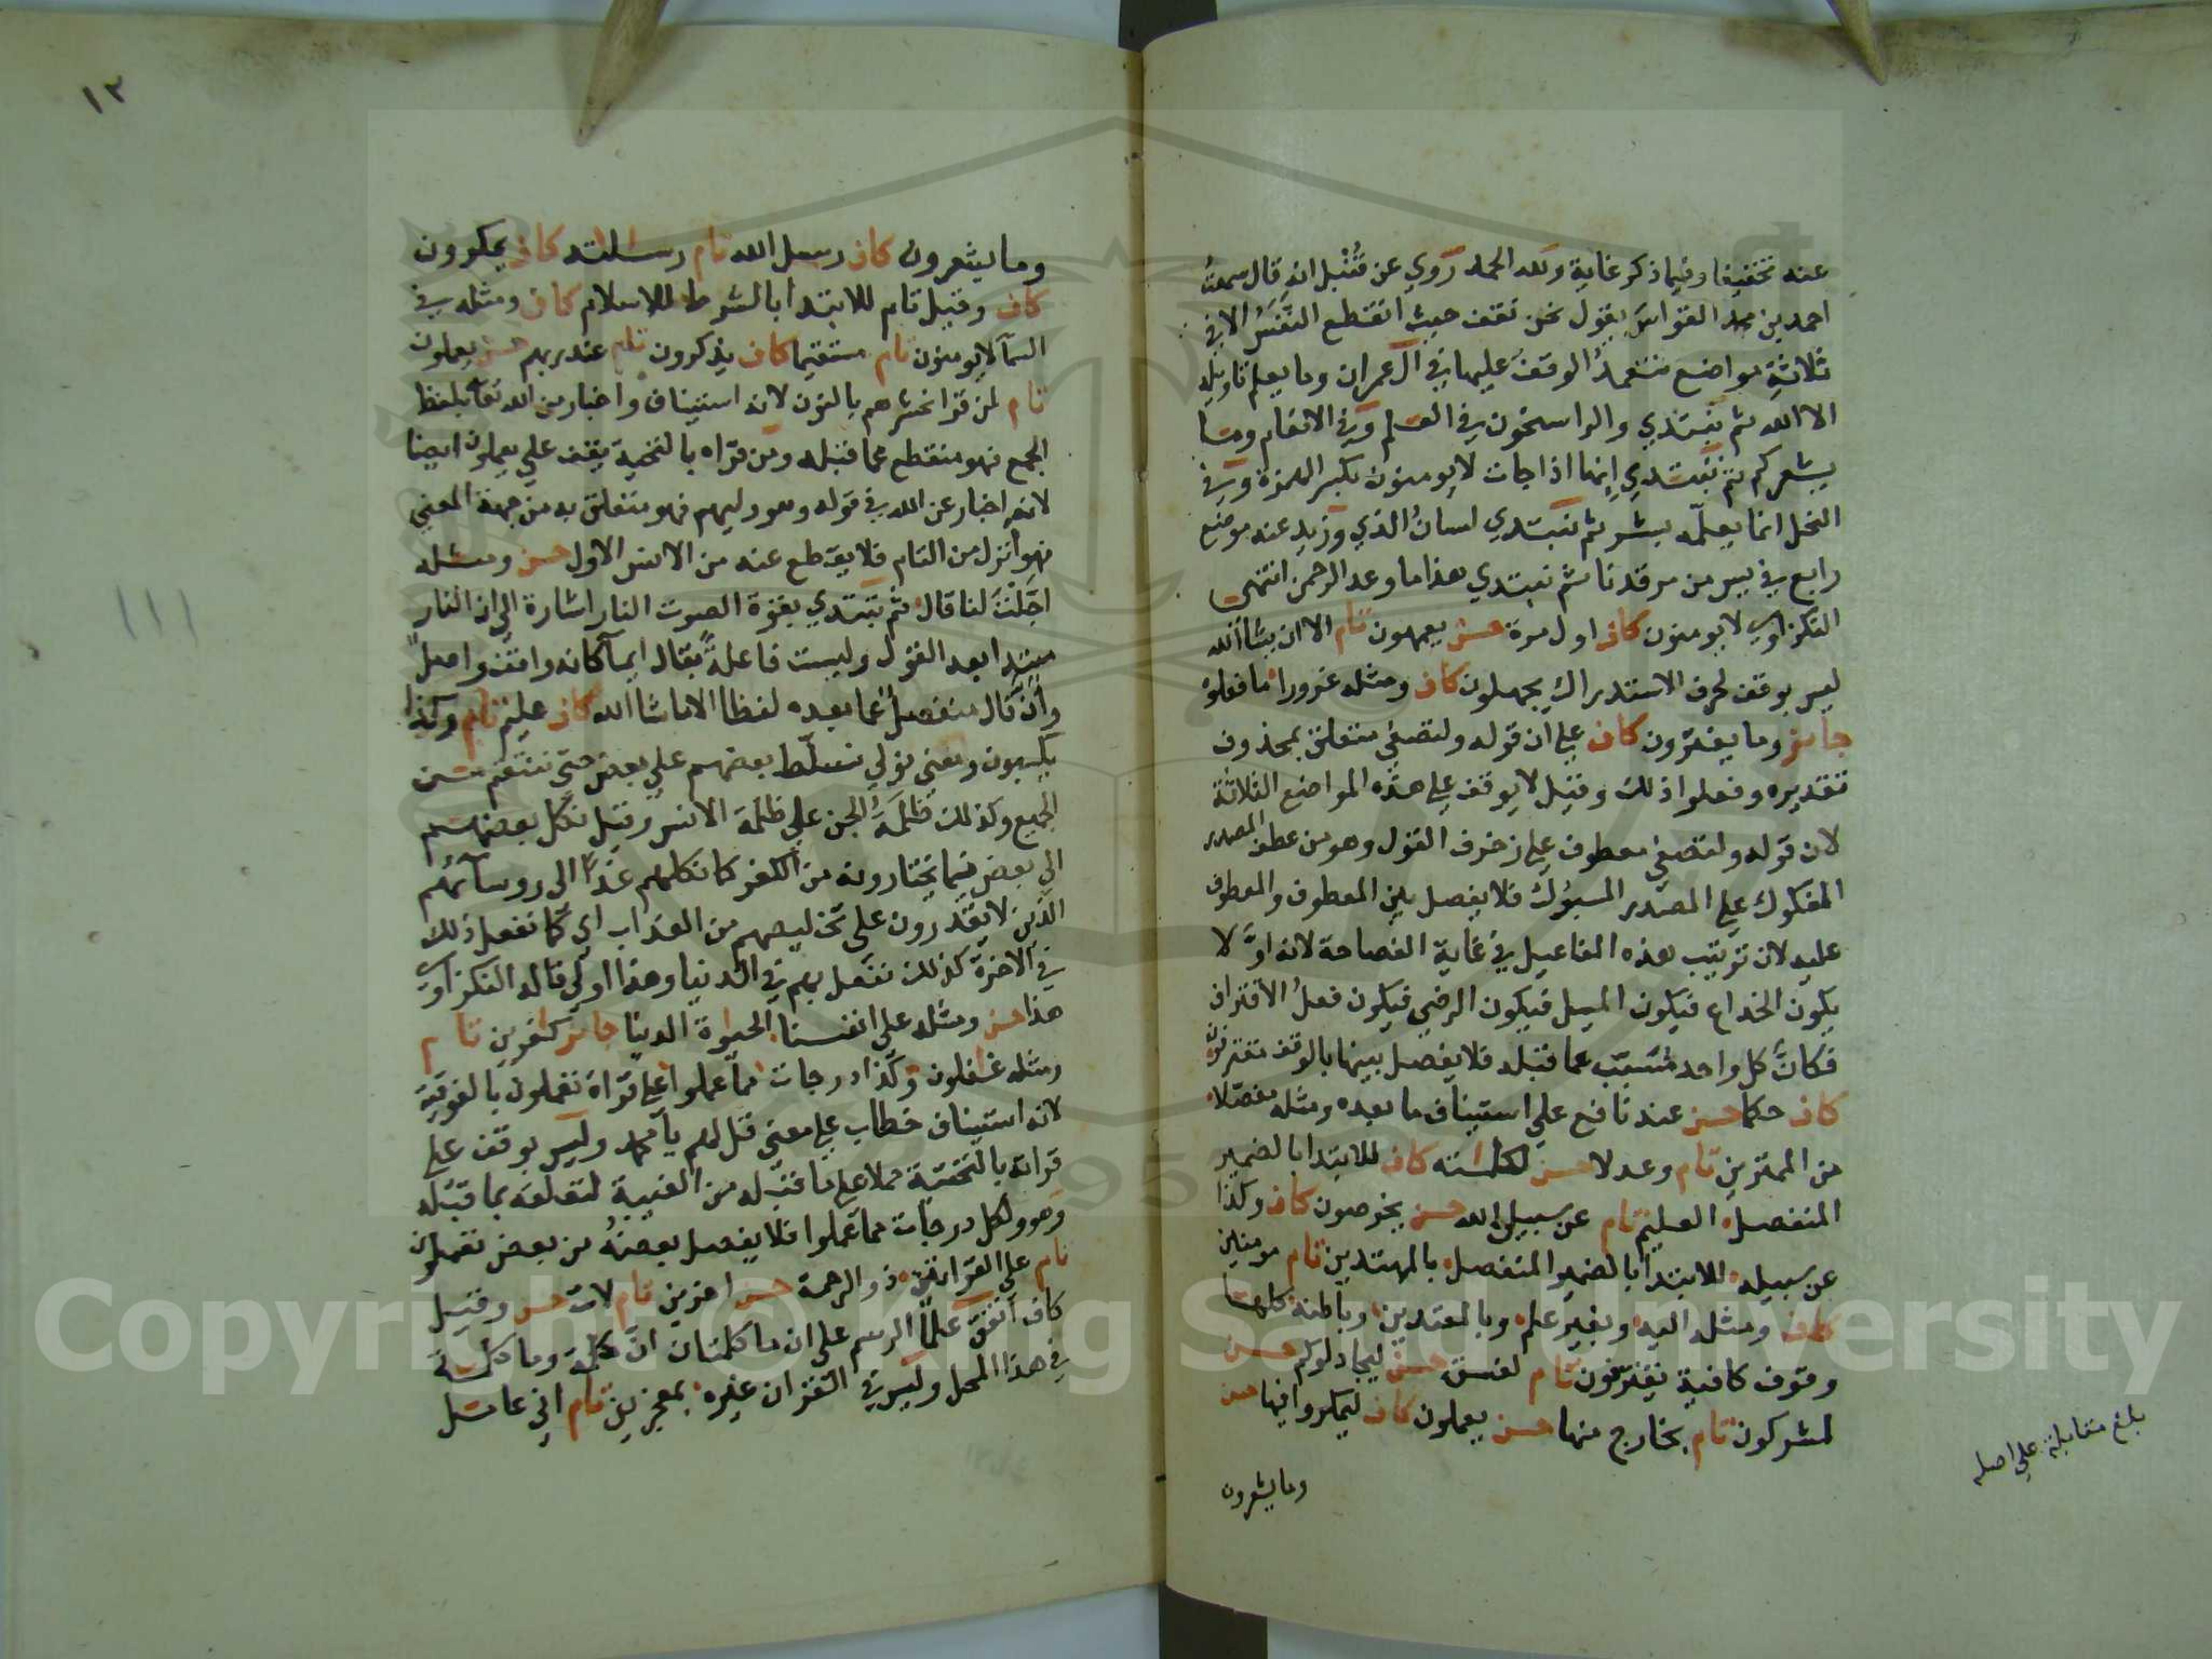 عنه تخفيفا وفيما ذكر غاية ولله الحمد روي عن قنبل انه قال سمعت
احمد بن محمد القواس يقول نحن نقف حيث انقطع النفس الا في
ثلاثة مواضع نتعمد الوقف عليها في آل عمران وما يعلم تاويله
الا الله ثم نبتدي والراسخون في العلم وفي الانعام وما
يشعركم ثم نبتدي إنها اذا جات لا يومنون بكسر الهمزة وفي
النحل انما يعلمه بشر ثم نبتدي لسان الذي وزيد عنه موضع
رابع في يس من مرقدنا ثم نبتدي هذا ما وعد الرحمن انتهى
النكزاوي لا يومنون كاف اول مرة حسن يعمهون تام الا ان يشا الله
ليس بوقف لحرف الاستدراك يجهلون كاف ومثله غرورا ما فعلوه
جايز وما يفترون كاف على ان قوله ولتصغي متعلق بمحذوف
تقديره وفعلوا ذلك وقيل لا يوقف على هذه المواضع الثلاثة
لان قوله ولتصغي معطوف على زخرف القول وهو من عطف المصدر
المفكوك على المصدر المسبوك فلا يفصل بين المعطوف والمعطوف
عليه لان ترتيب هذه المفاعيل في غاية الفصاحة لانه اولا
يكون الخداع فيكون الميل فيكون الرضي فيكون فعل الاقتراف
فكان كل واحد مسبب عما قبله فلا يفصل بينها بالوقف مقترفون
كاف حكما حسن عند نافع على استيناف ما بعده ومثله مفصلا
من الممترين تام وعدلا حسن لكلماته كاف للابتدا بالضمير
المنفصل العليم تام عن سبيل الله حسن يخرصون كاف وكذا
عن سبيله للابتدا بالضمير المنفصل بالمهتدين تام مومنين
كاف ومثله اليه وبغير علم وبالمعتدين وباطنه كلها
وقوف كافية يقترفون تام لفسق حسن ليجادلوكم حسن
لمشركون تام بخارج منها حسن يعملون كاف ليمكروا فيها حسن
وما يشعرون
بلغ مقابلة على اصله
١٣
وما يشعرون كاف رسل الله تام رسالته كاف يمكرون
كاف وقيل تام للابتدا بالشرط للاسلام كاف ومثله في
السمآ لا يومنون تام مستقيما كاف يذكرون تام عند ربهم حسن يعملون
تام لمن قرا نحشرهم بالنون لانه استيناف واخبار من الله تعالى بلفظ
الجمع فهو منقطع عما قبله ومن قراه بالتحتية يقف على يعملون ايضا
لانه اخبار عن الله في قوله وهو وليهم فهو متعلق به من جهة المعني
فهو أنزل من التام فلا يقطع عنه من الانس الاول حسن ومثله
اجلت لنا قال ثم تبتدي بقوة الصوت النار اشارة الى ان النار
مبتدا بعد القول وليست فاعلة بقال ايمآ كانه واقف واصل
وأن قال منفصل عما بعده لفظا الا ما شا الله كاف عليم تام وكذا
يكسبون ومعنى نولي نسلط بعضهم على بعض حتى ننتقم من
الجميع وكذلك ظلمة الجن على ظلمة الانس وقيل نكل بعضهم
الى بعض فيما يختارونه من الكفر كما نكلهم غدا الى روسآئهم
الذين لا يقدرون على تخليصهم من العذاب اي كما نفعل ذلك
في الاخرة كذلك نفعل بهم في الدنيا وهذا اولى قاله النكزاوي
هذا حسن ومثله على انفسنا الحيوة الدنيا جايز كفرين تام
ومثله غفلون وكذا درجات مما عملوا على قراة تعملون بالفوقية
لانه استيناف خطاب على معنى قل لهم يا محمد وليس بوقف على
قراته بالتحتية حملا على ما قبله من الغيبة لتعلقه بما قبله
وهو ولكل درجات مما عملوا فلا يفصل بعضه من بعض تعملون
تام على القراتين ذو الرحمة حسن اخرين تام لات حسن وقيل
كاف اتفق علما الرسم على ان ما كلمتان ان كلمة وما كلمة
في هذا المحل وليس في القران غيره بمعجزين تام اني عامل